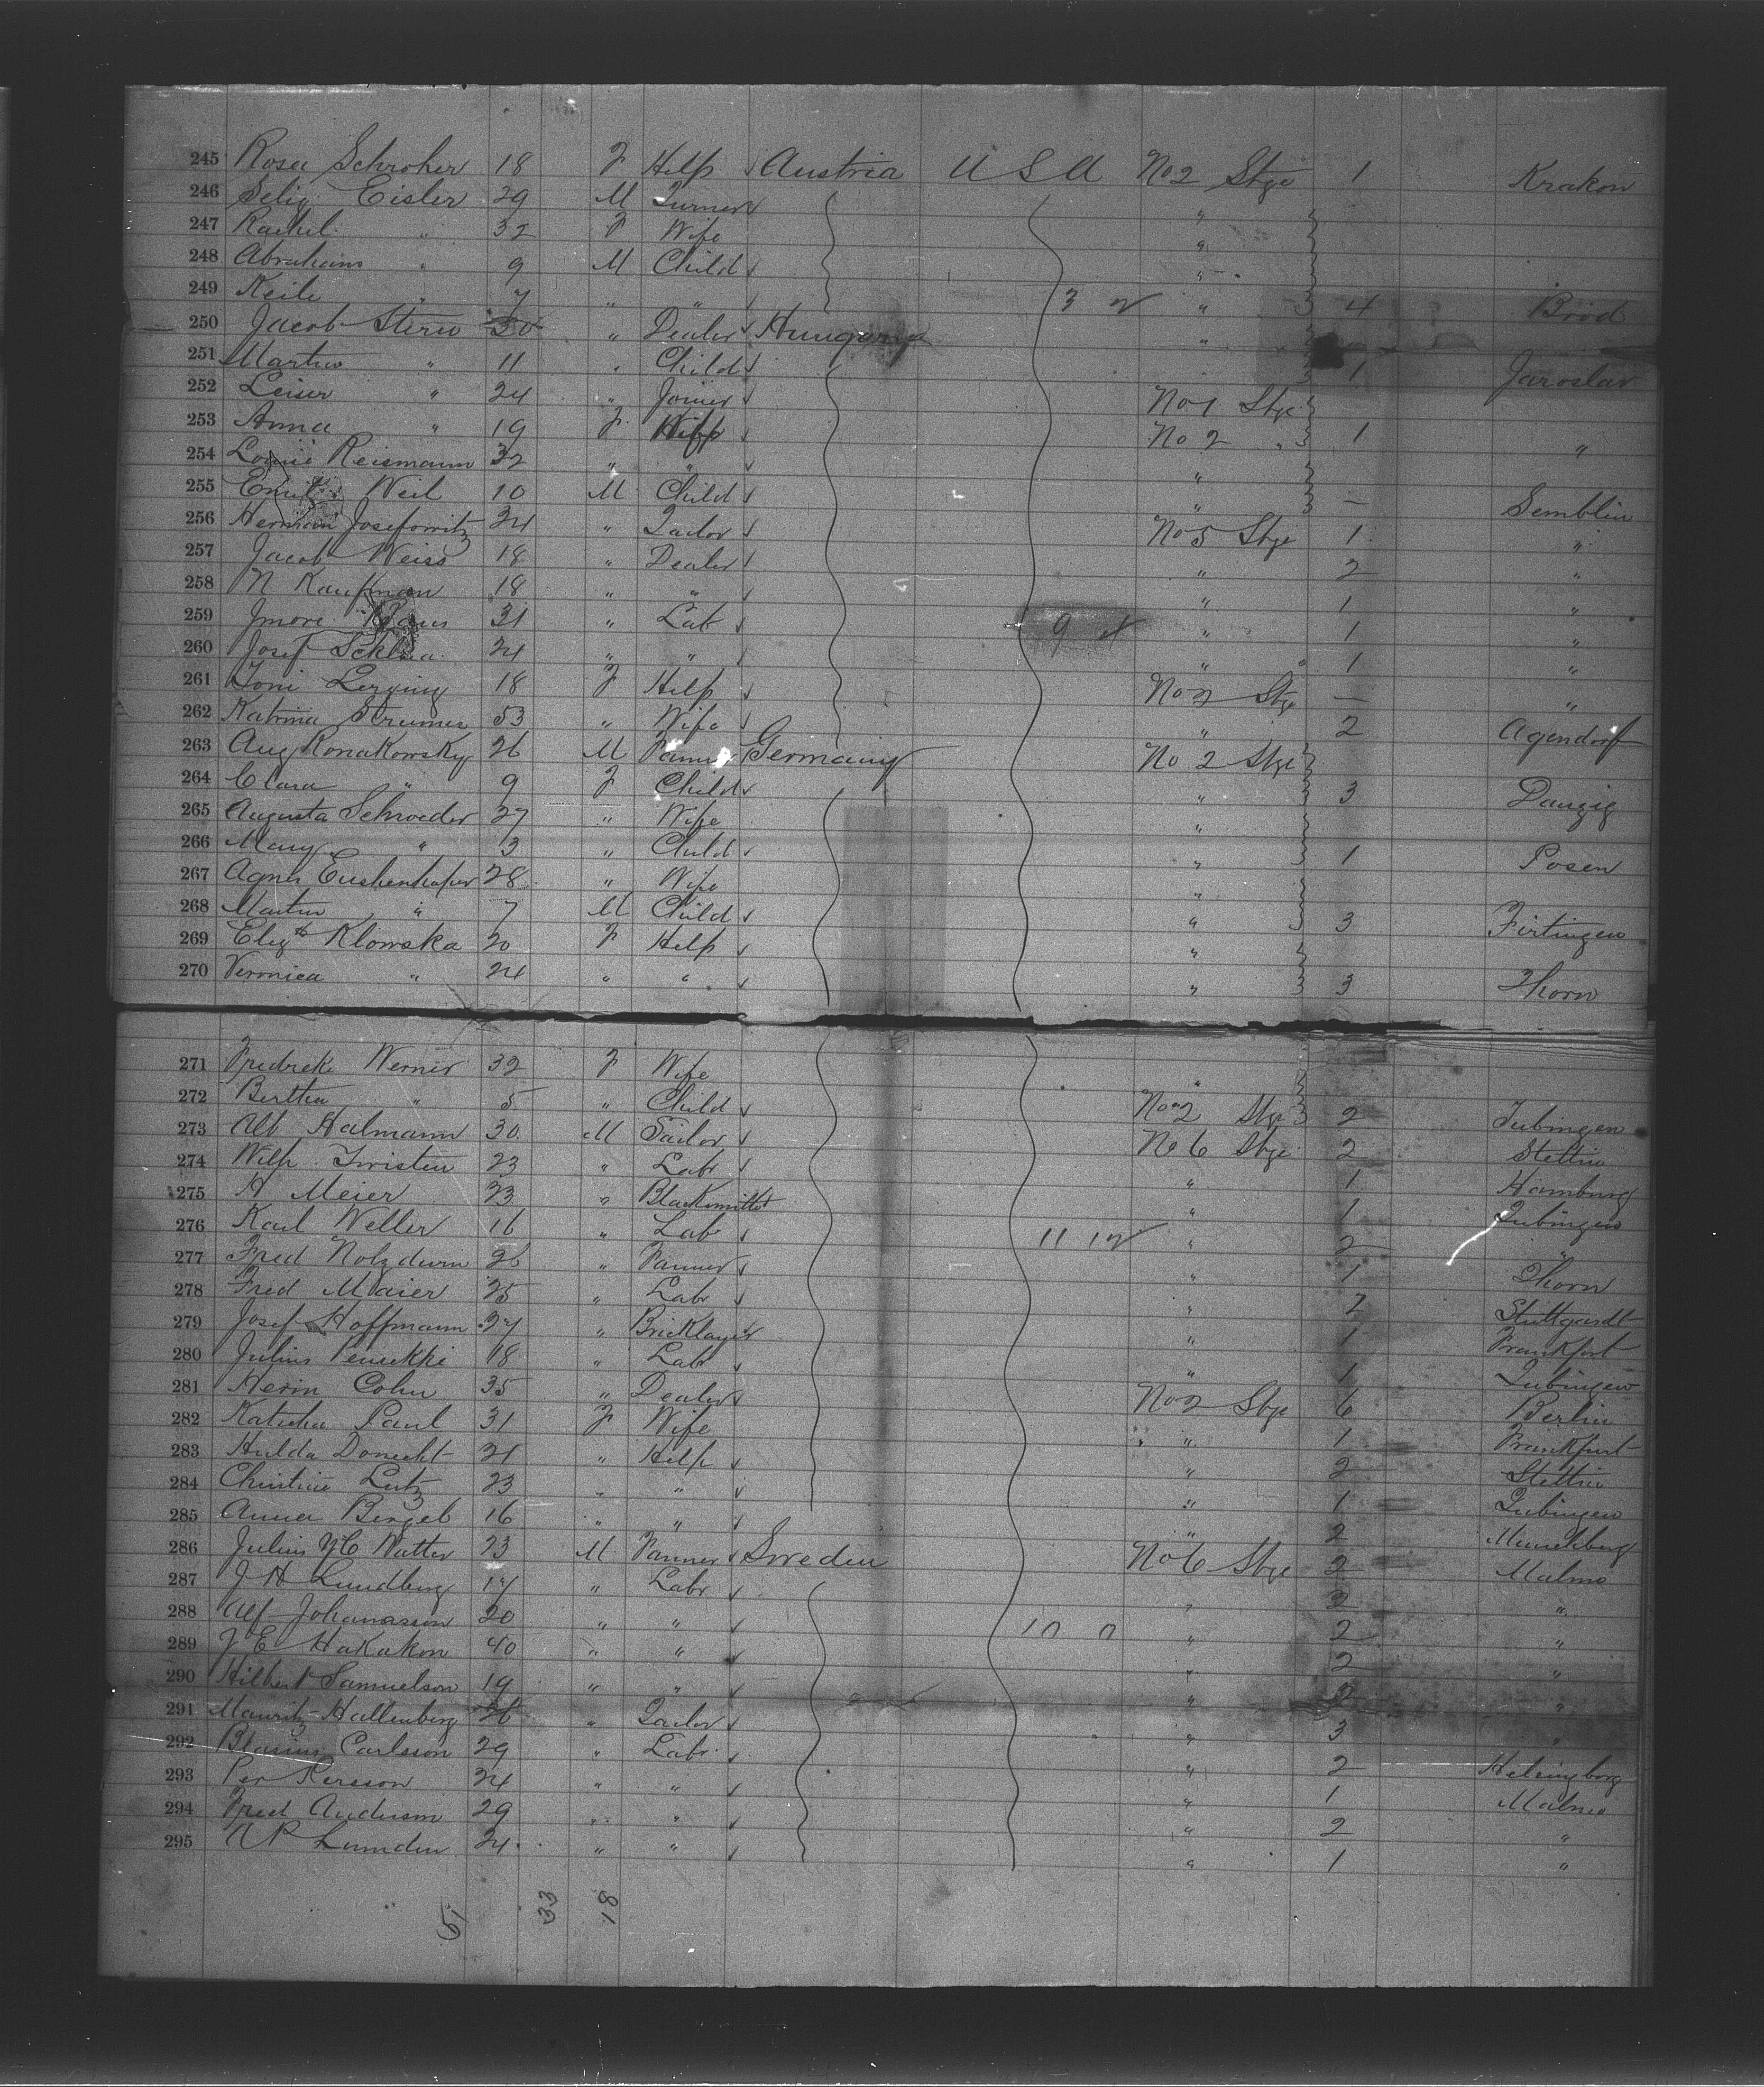 245 Rosa Schroher 18 F Help Austria U S A No 2 Stge 1 Krakon
246 Selig Eisler 29 M Turner "
247 Rachel " 32 F Wife "
248 Abraham " 9 M Child "
249 Keile " 7 " " 3 2 " 4 Brod
250 Jacob Stern 30 " Dealer Hungary "
251 Martin " 11 " Child 1 Jaroslav
252 Leiser " 24 " Joiner No 1 Stge
253 Anna " 19 F Wife No 2 " 1 "
254 Reismann 32 " " "
255 Emil Weil 10 M Child " — Semblin
256 Herman Josefowitz 34 " Tailor No 5 Stge 1 "
257 Jacob Weiss 18 " Dealer " 2 "
258 N Kaufman 18 " " " 1 "
259 31 " Lab 9 " 1 "
260 Josef 24 " " " 1 "
261 Toni 18 F Help No 2 Stge — "
262 Katrina 53 " Wife " 2 Agendorf
263 Aug Ronakowsky 26 M Farmer Germany No 2 Stge
264 Clara " 9 F Child " 3 Danzig
265 Augusta Schroeder 27 " Wife "
266 Mary " 3 " Child " 1 Posen
267 Agnes 28 " Wife "
268 Martin " 7 M Child " 3 Firtingen
269 Elizth Klowska 20 F Help "
270 Veronica " 24 " " " 3 Thorn
271 Fredrek Werner 32 F Wife "
272 Bertha " 5 " Child No 2 Stge 2 Tubingen
273 Alb Halmann 30 M Tailor No 6 Stge 2 Stettin
274 Wilh Twisten 23 " Labr " 1 Hamburg
275 H Meier 23 " Blacksmith " 1 Tubingen
276 Karl Weller 16 " Lab 11 12 " 2 "
277 Fred 26 " Farmer " 1 Thorn
278 Fred Maier 25 " Labr " 2 Stuttgardt
279 Josef Hoffmann 27 " Bricklayer " 1 Frankfort
280 Julius 18 " Labr " 1 Tubingen
281 Herin Cohn 35 " Dealer No 2 Stge 6 Berlin
282 Katicha Paul 31 F Wife " 1 Frankfurt
283 Hulda Donecht 21 " Help " 2 Stettin
284 Christine Lutz 23 " " " 1 Tubingen
285 Anna Bergel 16 " " " 2
286 Julius Watter 23 M Farmer Sweden No 6 Stge 2 Malmo
287 J H Lundberg 17 " Labr " 2 "
288 Alf Johansson 20 " " 10 0 " 2 "
289 J E Hakakon 40 " " " 2 "
290 Hilbert Samuelson 19 " " " 2 "
291 Mauritz Hallenberg 26 " Tailor " 3 "
292 Blasius Carlsson 29 " Labr " 2 Helsingborg
293 Per Persson 24 " " " 1 Malmo
294 Fred Anderson 29 " " " 2 "
295 A P Lumden 24 " " " 1 "
51 33 18